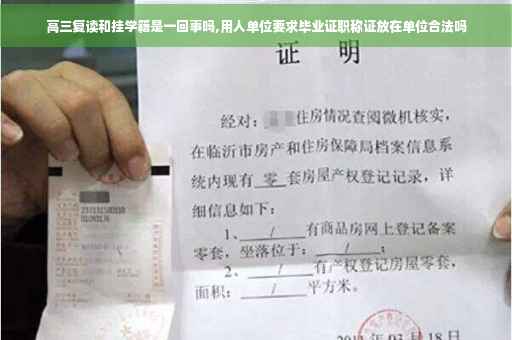 高三复读和挂学籍是一回事吗,用人单位要求毕业证职称证放在单位合法吗
证 明
经对：住房情况查阅微机核实，
在临沂市房产和住房保障局档案信息系
统内现有 零 套房屋产权登记记录，详
细信息如下：
1、 / 有商品房网上登记备案
零套，坐落位于： / ；
2、 / 有产权登记房屋零套，
面积： / 平方米。
03月18日